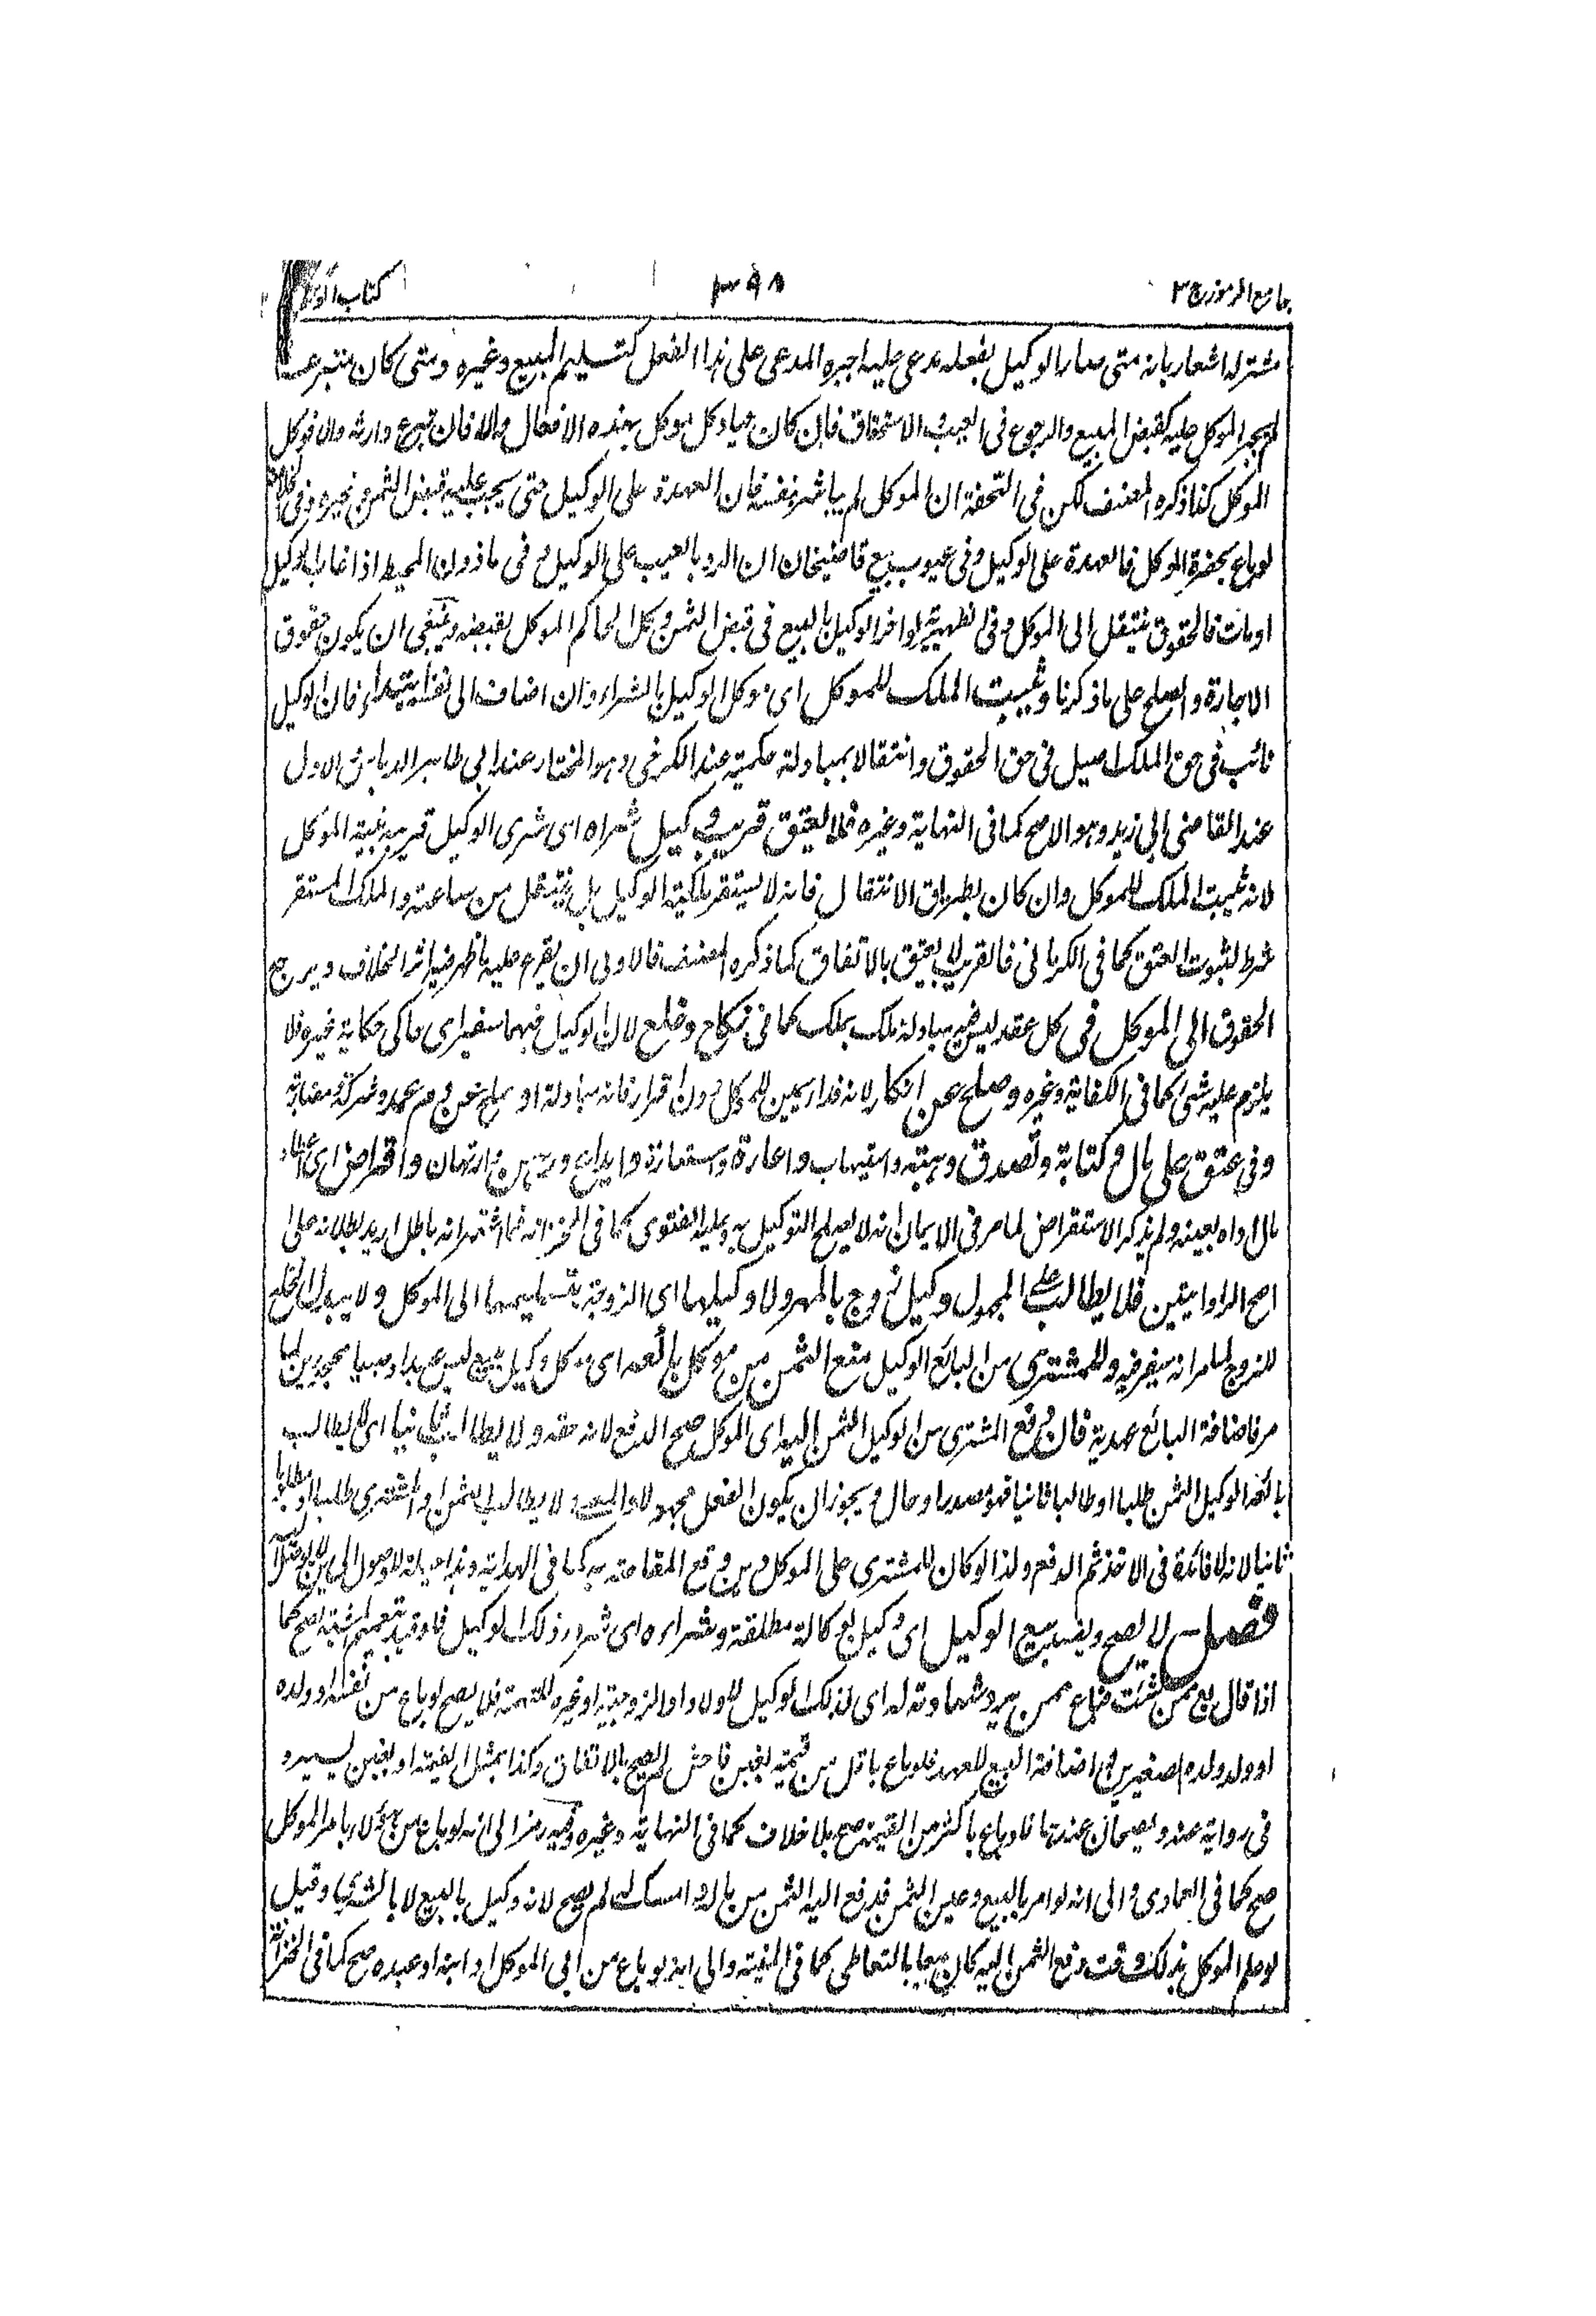 جامع الرموز ج ٣
٣٩٨
كتاب
مشتركه اشعار بانه متى صار الوكيل بفعله مدعى عليه اجبره المدعى على هذا الفعل كتسليم المبيع وغيره ومتى كان
لم يجبر الموكل عليه كقبض المبيع والرجوع فى العيب والاستحقاق فان كان حيا وكل موكل بهذه الافعال والا فان وارثه والا فوكل
الموكل كذا ذكره المصنف لكن فى التحفة ان الموكل لم يباشر بنفسه فان العهدة على الوكيل حتى يجب عليه قبض الثمن وغيره وفى
لو باع بحضرة الموكل فالعهدة على الوكيل وفى عيوب بيع قاضيخان ان الرد بالعيب على الوكيل وفى ماذون المحيط اذا غاب الوكيل
او مات فالحقوق ينتقل الى الموكل وفى الظهيرية لو اخر الوكيل بالبيع فى قبض الثمن وكل الحاكم الموكل بقبضه وينبغى ان يكون حقوق
الاجارة والصلح على ما ذكرنا ويثبت الملك للموكل اى موكل الوكيل بالشراء وان اضاف الى نفسه ابتداء فان الوكيل
نائب فى حق الملك اصيل فى حق الحقوق وانتقالا بمبادلة حكمية عند الكرخى وهو المختار عند ابى طاهر الدباس الاول
عند القاضى ابى زيد وهو الاصح كما فى النهاية وغيره فلا يعتق قريب وكيل شراه اى شرى الوكيل قريبه غيبة الموكل
لانه يثبت الملك للموكل وان كان بطريق الانتقال فانه لا يستقر ملكية الوكيل بل ينتقل من ساعته والملك المستقر
شرط لثبوت العتق كما فى الكرمانى فالقريب لا يعتق بالاتفاق كما ذكره المصنف فالاولى ان يفرع عليه ما ظهر فيه اثر الخلاف ويرجع
الحقوق الى الموكل فى كل عقد ليس فيه مبادلة ملك بملك كما فى نكاح وخلع لان الوكيل فيهما سفير اى حاكى حكاية غيره فلا
يلزم عليه شئ كما فى الكفاية وغيره وصلح عن انكار لانه فداء يمين للموكل دون اقرار فانه مبادلة او صلح عن دم عمد وشركة ومضاربة
وفى عتق على مال وكتابة وتصدق وهبة واستيهاب واعارة واستعارة وايداع ورهن وارتهان واقراض اى
مال اداه بعينه ولم يذكر الاستقراض لما مر فى الايمان انه لا يصلح التوكيل به وعليه الفتوى كما فى الخزانة فما اشتهر انه باطل اريد بطلانه على
اصح الروايتين فلا يطالب على المجهول وكيل زوج بالمهر ولا وكيلها اى الزوجة بتسليمها الى الموكل ولا ببدل الخلع
للزوج لما مر انه سفير فيه وللمشترى من البائع الوكيل منع الثمن من موكل بائعه اى موكل وكيل يبيع ليس عبدا وصبيا محجورين لما
مر فاضافة البائع عهدية فان دفع المشترى من الوكيل الثمن اليه اى الموكل صح الدفع لانه حقه ولا يطالب ثانيا اى لا يطالب
بائعه الوكيل الثمن طلبا او طالبا ثانيا فهو مصدر او حال ويجوز ان يكون الفعل مجهولا والمعنى ولا يطالب الثمن او المشترى طلبا او مطلوبا
ثانيا لانه لا فائدة فى الاخذ ثم الدفع ولذا لو كان للمشترى على الموكل دين وقع المقاصة به كما فى الهداية وهذا حيلة لوصول الى
فصل لا يصح ويفسد بيع الوكيل اى وكيل بوكالة مطلقة وشراءه اى شراء ذلك الوكيل فلو قيد بتعميم المشيئة يصح كما
اذا قال بع ممن شئت فباع ممن يرد شهادته له اى لذلك الوكيل للولاد او الزوجية او غيره للتهمة فلا يصح لو باع من نفسه او ولده
او ولد ولده الصغيرين اضافة البيع للعهد فلو باع باقل من قيمته بغبن فاحش لم يصح بالاتفاق وكذا بمثل القيمة او بغبن يسير و
فى رواية عنه ويصحان عندهما فلو باع باكثر من القيمة صح بلا خلاف كما فى النهاية وغيره وفيه رمز الى انه لو باع من هؤلاء بامر الموكل
صح كما فى العمادى والى انه لو امر بالبيع وعين الثمن فدفع اليه الثمن من ماله وامسك لم يصح لانه وكيل بالبيع لا بالشرى وقيل
لو علم الموكل بذلك وقت دفع الثمن اليه كان بيعا بالتعاطى كما فى المنية والى انه لو باع من ابى الموكل او ابنه او عبده صح كما فى